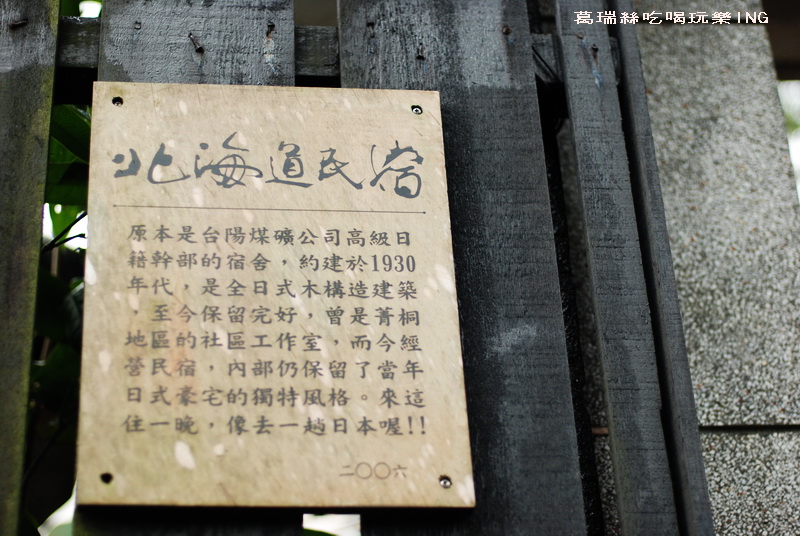 葛瑞絲吃喝玩樂ING
北海道民宿
原本是台陽煤礦公司高級日
籍幹部的宿舍，約建於1930
年代，是全日式木構造建築
，至今保留完好，曾是菁桐
地區的社區工作室，而今經
營民宿，內部仍保留了當年
日式豪宅的獨特風格。來這
住一晚，像去一趟日本喔!!
二〇〇六